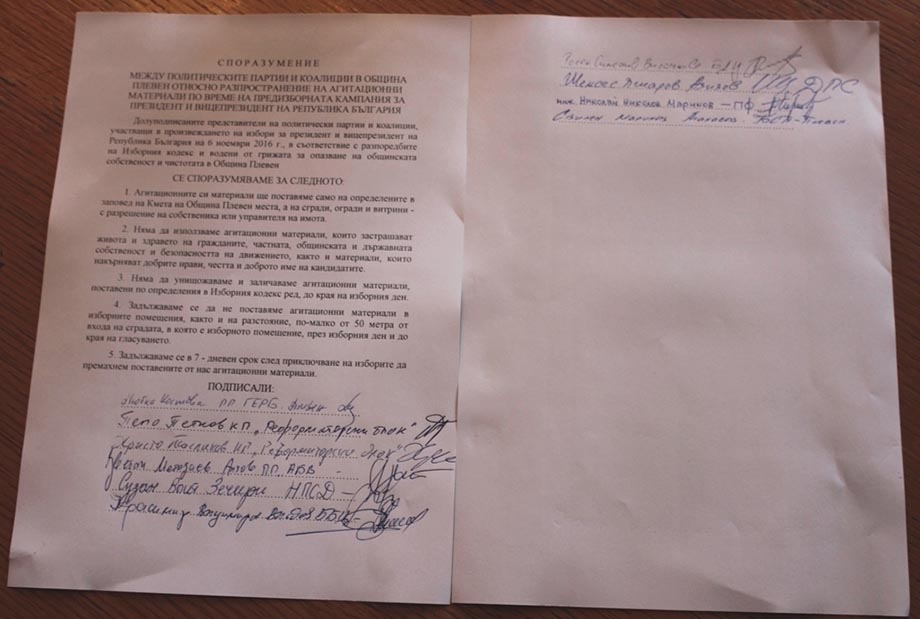 СПОРАЗУМЕНИЕ
МЕЖДУ ПОЛИТИЧЕСКИТЕ ПАРТИИ И КОАЛИЦИИ В ОБЩИНА
ПЛЕВЕН ОТНОСНО РАЗПРОСТРАНЕНИЕ НА АГИТАЦИОННИ
МАТЕРИАЛИ ПО ВРЕМЕ НА ПРЕДИЗБОРНАТА КАМПАНИЯ ЗА
ПРЕЗИДЕНТ И ВИЦЕПРЕЗИДЕНТ НА РЕПУБЛИКА БЪЛГАРИЯ
Долуподписаните представители на политически партии и коалиции,
участващи в произвеждането на избори за президент и вицепрезидент на
Република България на 6 ноември 2016 г., в съответствие с разпоредбите
на Изборния кодекс и водени от грижата за опазване на общинската
собственост и чистотата в Община Плевен
СЕ СПОРАЗУМЯВАМЕ ЗА СЛЕДНОТО:
1. Агитационните си материали ще поставяме само на определените в
заповед на Кмета на Община Плевен места, а на сгради, огради и витрини -
с разрешение на собственика или управителя на имота.
2. Няма да използваме агитационни материали, които застрашават
живота и здравето на гражданите, частната, общинската и държавната
собственост и безопасността на движението, както и материали, които
накърняват добрите нрави, честта и доброто име на кандидатите.
3. Няма да унищожаваме и заличаваме агитационни материали,
поставени по определения в Изборния кодекс ред, до края на изборния ден.
4. Задължаваме се да не поставяме агитационни материали в
изборните помещения, както и на разстояние, по-малко от 50 метра от
входа на сградата, в която е изборното помещение, през изборния ден и до
края на гласуването.
5. Задължаваме се в 7 - дневен срок след приключване на изборите да
премахнем поставените от нас агитационни материали.
ПОДПИСАЛИ:
Костова ПП ГЕРБ
Пепо Петков КП „Реформаторски блок"
Христо КП „Реформаторски блок"
ПП АБВ
НПСД -
Красимир ББЦ -
БДЦ
ДПС
инж. Николай Николов Маринов - ПФ
Маринов БСП - Плевен